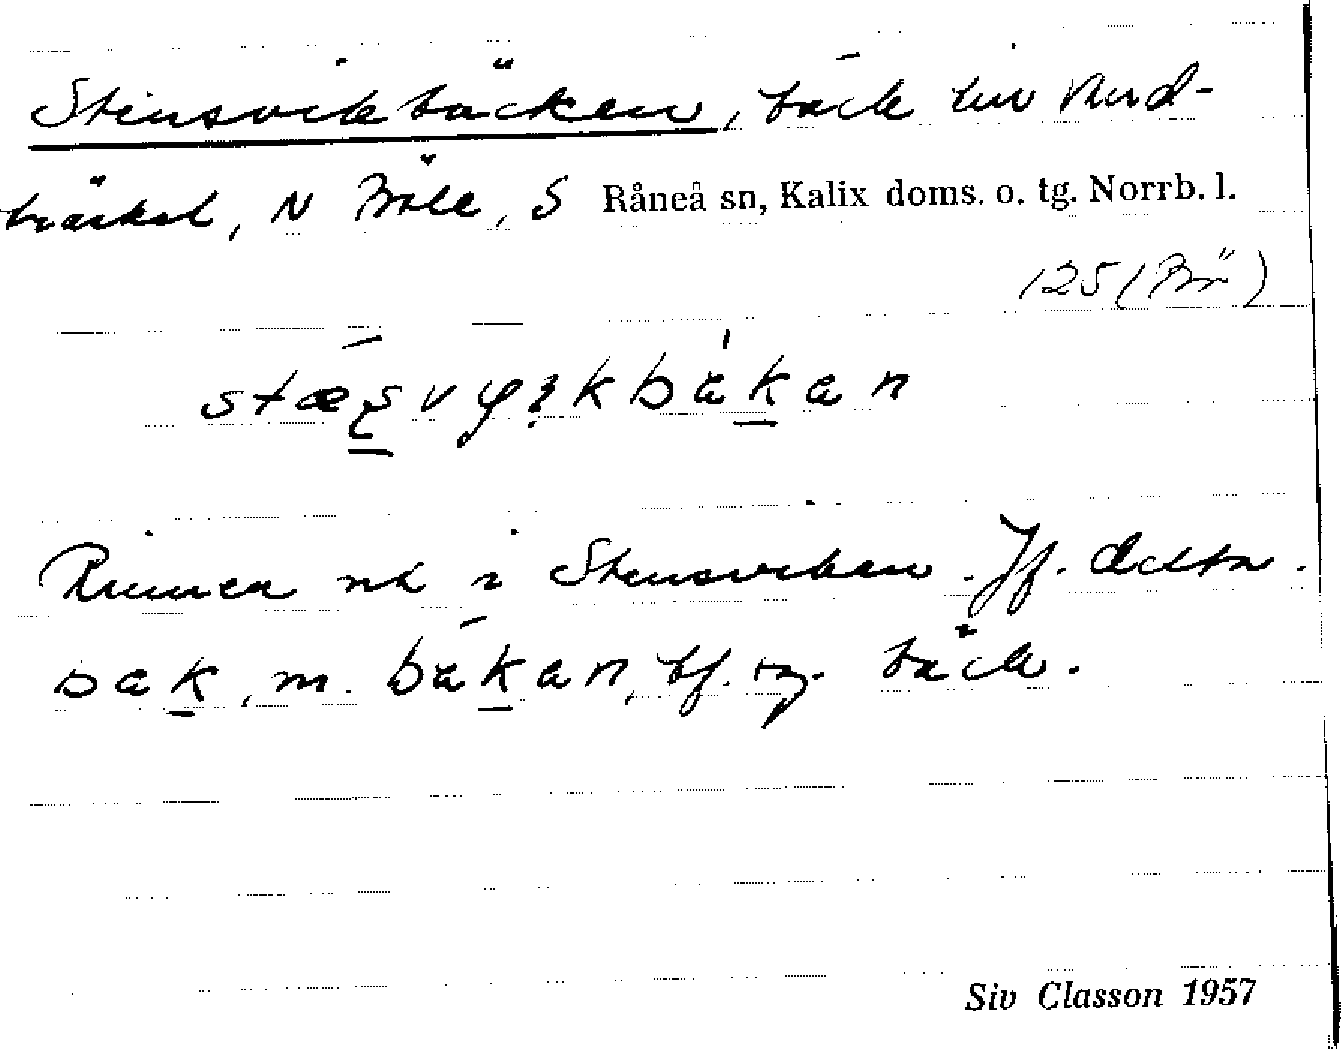 Stensvikbäcken, bäck tiv Rud-
träsket, N Böle, S Råneå sn, Kalix doms. o. tg. Norrb. l.
125 (Bö)
Rinner ut i Stensviken. Jf. detta.
bäk, m. bäkan, bf. sg. bäck.
Siv Classon 1957